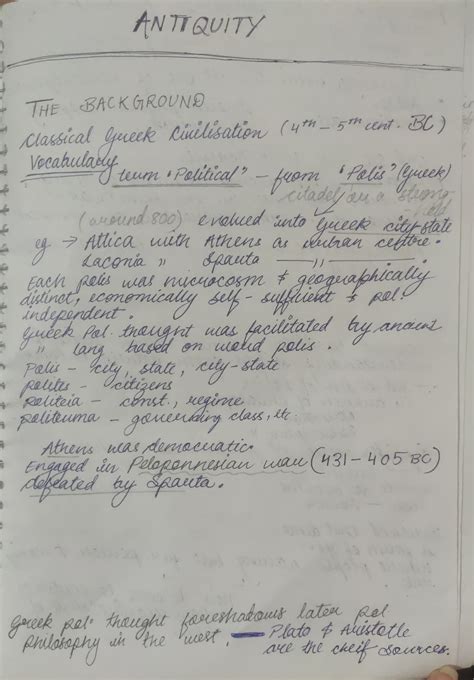 ANTIQUITY
THE BACKGROUND
Classical Greek Civilisation (4th – 5th cent. BC)
Vocabulary
term "Political" – from "Polis" (Greek)
citadel/on a strong
(around 800) evolved into Greek city-state
eg → Attica with Athens as urban centre.
Laconia " Sparta —— " ——
Each polis was microcosm & geographically
distinct, economically self-sufficient & pol.
independent.
Greek Pol. thought was facilitated by ancient
" lang based on word polis.
Polis – city, state, city-state
polites – citizens
politeia – const., regime
politeuma – governing class, etc
Athens was democratic.
Engaged in Peloponnesian war (431–405 BC)
defeated by Sparta.
Greek pol. thought foreshadows later pol
philosophy in the west. — Plato & Aristotle
are the cheif sources.